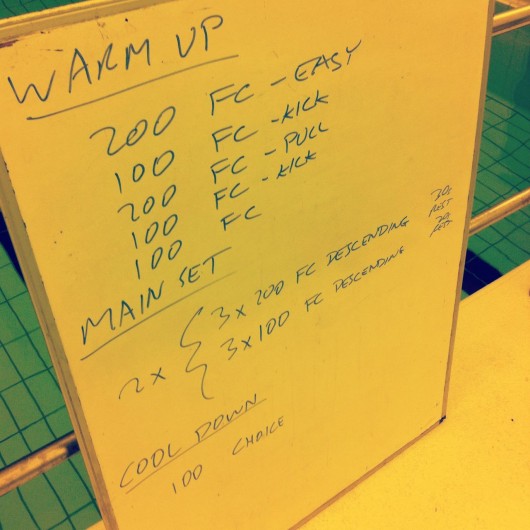 WARM UP
200 FC - EASY
100 FC - KICK
200 FC - PULL
100 FC - KICK
100 FC
MAIN SET
2 X { 3 X 200 FC DESCENDING 30s REST
3 X 100 FC DESCENDING 20 REST
COOL DOWN
100 CHOICE